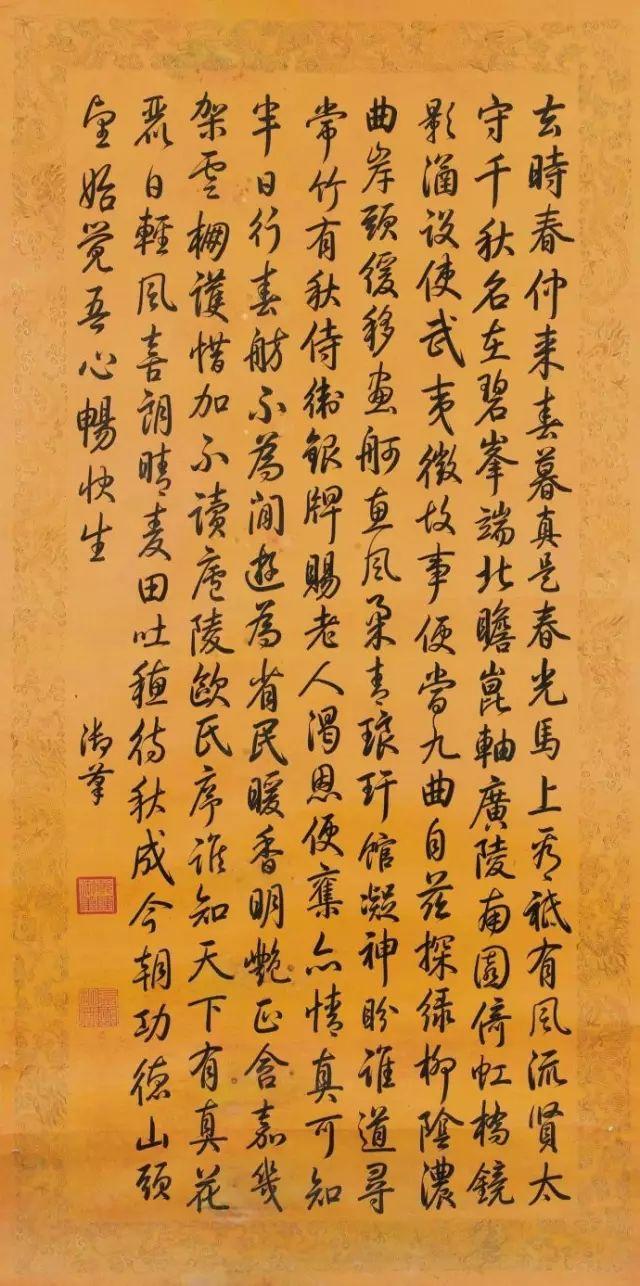 去時春仲來春暮真是春光馬上看祗有風流賢太
守千秋名在碧峯端北瞻崑軸廣陵南園倚虹橋鏡
影涵設使武夷徵故事便當九曲自茲探綠柳陰濃
曲岸頭緩移畫舸惠風柔青琅玕館凝神盼誰道尋
常竹有秋侍衛銀牌賜老人渴恩便奪亦情真可知
半日行春舫不為閒遊為省民暖香明艷正含嘉幾
架雲棚護惜加不讀廬陵歐氏序誰知天下有真花
麗日輕風喜朗晴麥田吐穗待秋成今朝功德山頭
望始覺吾心暢快生
御筆